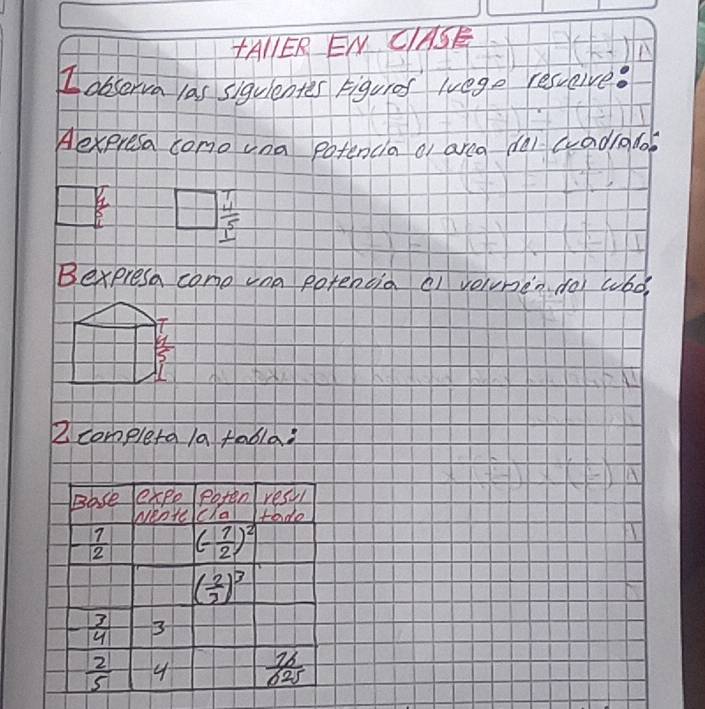 TALLER EN CLASE
1 observa las siguientes Figuras luego resuelve:
A expresa como una potencia el area del cuadrado.
4/5
4/5
B expresa como una potencia el volumen del cubo.
4/5
2 completa la tabla:
Base expo nente poten cia resul tado
-1/2 (-1/2)²
(2/3)³
-3/4 3
2/5 4 16/625